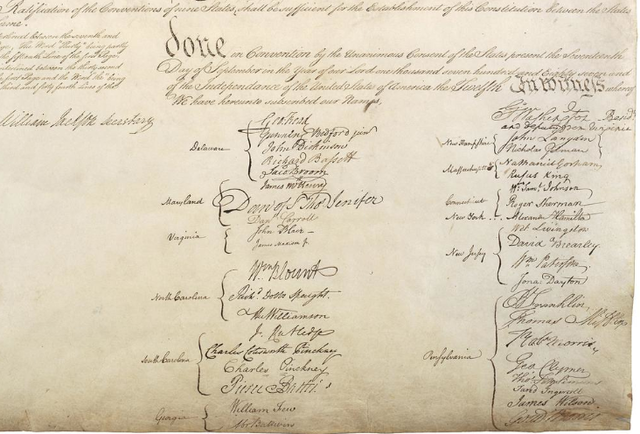 Ratification of the Conventions of nine States, shall be sufficient for the Establishment of this Constitution between the States
done in Convention by the Unanimous Consent of the States present the Seventeenth
Day of September in the Year of our Lord one thousand seven hundred and Eighty seven and
of the Independance of the United States of America the Twelfth In Witness whereof
We have hereunto subscribed our Names,
William Jackson Secretary
Delaware
Geo: Read
Gunning Bedford jun
John Dickinson
Richard Bassett
Jaco: Broom
Maryland
James McHenry
Dan of St Thos Jenifer
Danl Carroll
Virginia
John Blair
James Madison Jr
North Carolina
Wm Blount
Richd Dobbs Spaight.
Hu Williamson
South Carolina
J. Rutledge
Charles Cotesworth Pinckney
Charles Pinckney
Pierce Butler
Georgia
William Few
Abr Baldwin
Go Washington Presidt
and deputy from Virginia
New Hampshire
John Langdon
Nicholas Gilman
Massachusetts
Nathaniel Gorham
Rufus King
Connecticut
Wm Saml Johnson
Roger Sherman
New York
Alexander Hamilton
New Jersey
Wil: Livingston
David Brearley
Wm Paterson
Jona: Dayton
Pensylvania
B Franklin
Thomas Mifflin
Robt Morris
Geo. Clymer
Thos FitzSimons
Jared Ingersoll
James Wilson
Gouv Morris